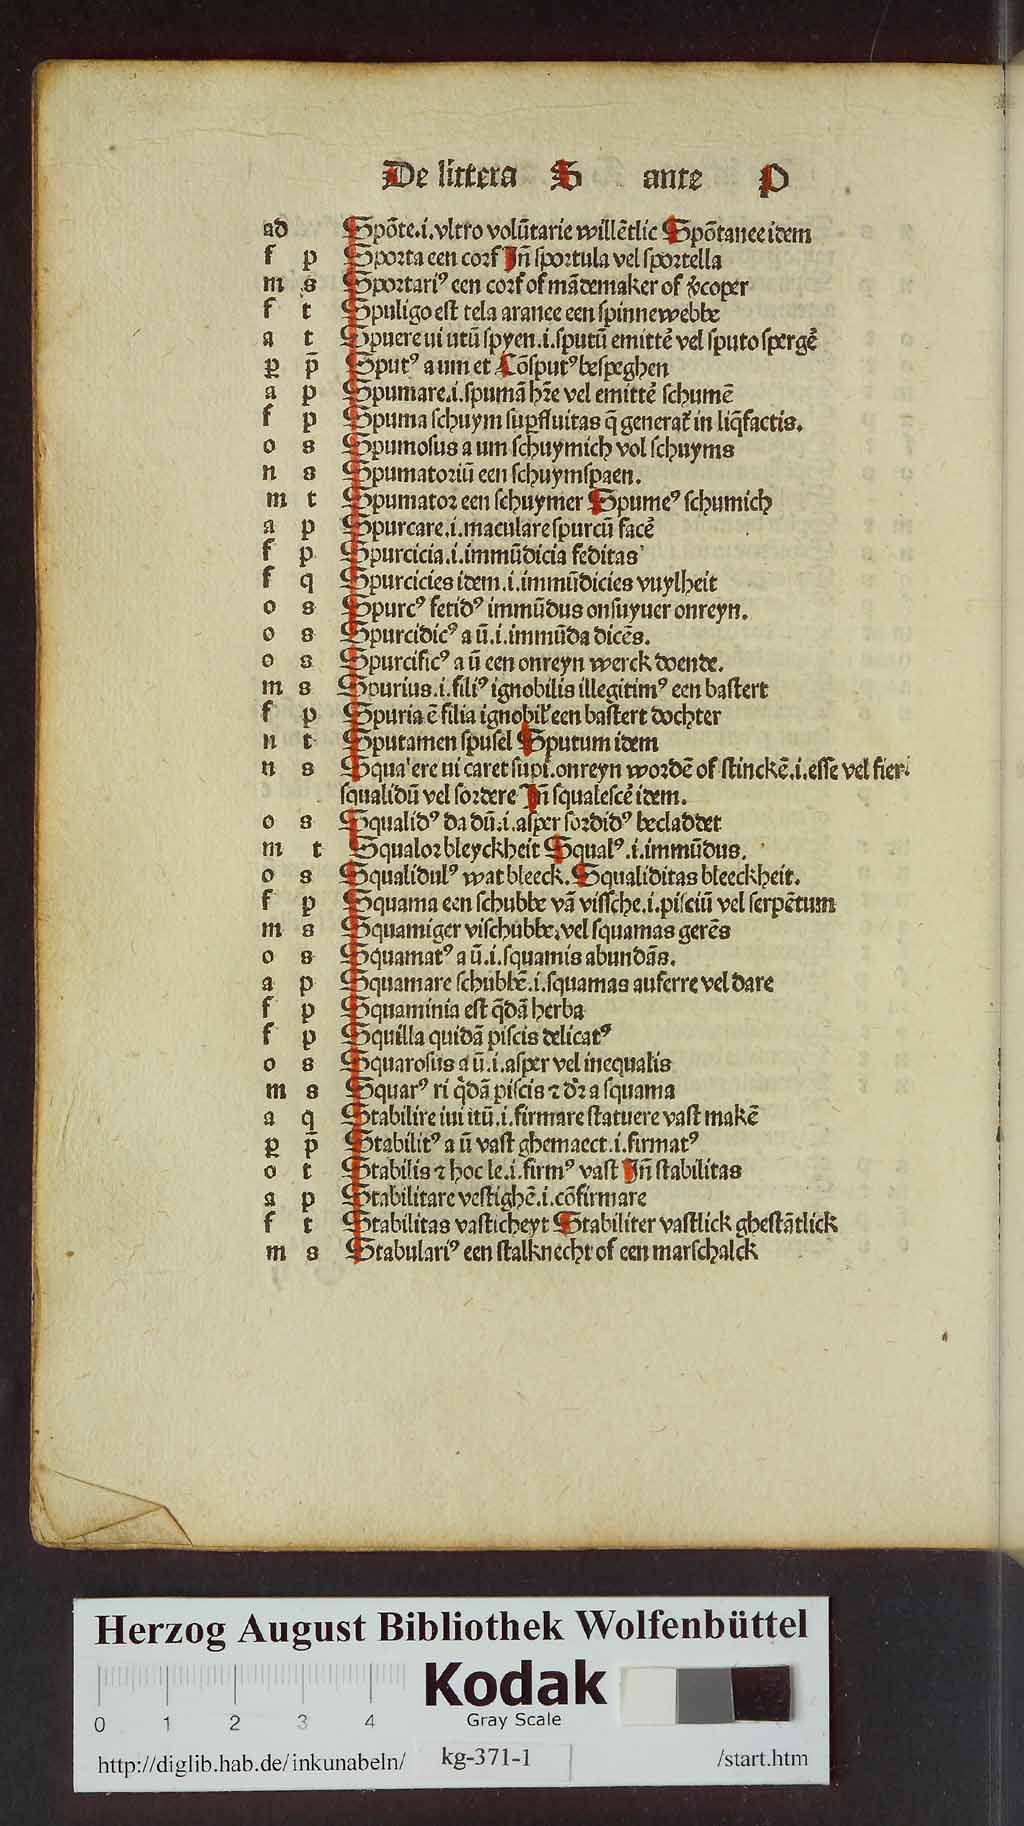 De littera S ante P
ad Spōte.i.vltro volūtarie willētlic Spōtanee idem
f p Sporta een corf Jn̄ sportula vel sportella
m s Sportariꝰ een corf of mādemaker of v̓coper
f t Spuligo est tela aranee een spinnewebbe
a t Spuere ui utū spyen.i.sputū emitte᷑ vel sputo sperge᷑
ꝑ p̄ Sputꝰ a um et Cōsputꝰ bespeghen
a p Spumare.i.spumā hr̄e vel emitte᷑ schumē
f p Spuma schuym suꝑfluitas q̄ generat᷑ in liq̄factis.
o s Spumosus a um schuymich vol schuyms
n s Spumatoriū een schuymspaen.
m t Spumator een schuymer Spumeꝰ schumich
a p Spurcare.i.maculare spurcū face᷑
f p Spurcicia.i.immūdicia feditas
f q Spurcicies idem.i.immūdicies vuylheit
o s Spurcꝰ fetidꝰ immūdus onsuyuer onreyn.
o s Spurcidicꝰ a ū.i.immūda dicēs.
o s Spurcificꝰ a ū een onreyn werck doende.
m s Spurius.i.filiꝰ ignobilis illegitimꝰ een bastert
f p Spuria ē filia ignobil᷑ een bastert dochter
n t Sputamen spusel Sputum idem
n s Squa'ere ui caret supi.onreyn wordē of stinckē.i.esse vel fieri
squalidū vel sordere Jn̄ squalesce᷑ idem.
o s Squalidꝰ da dū.i.asper sordidꝰ becladdet
m t Squalor bleyckheit Squalꝰ.i.immūdus.
o s Squalidulꝰ wat bleeck. Squaliditas bleeckheit.
f p Squama een schubbe vā vissche.i.pisciū vel serpētum
m s Squamiger vischubbe.vel squamas gerēs
o s Squamatꝰ a ū.i.squamis abundās.
a p Squamare schubbē.i.squamas auferre vel dare
f p Squaminia est q̄dā herba
f p Squilla quidā piscis delicatꝰ
o s Squarosus a ū.i.asper vel inequalis
m s Squarꝰ ri q̇dā piscis ⁊ dr̄ a squama
a q Stabilire iui itū.i.firmare statuere vast makē
ꝑ p̄ Stabilitꝰ a ū vast ghemaect.i.firmatꝰ
o t Stabilis ⁊ hoc le.i.firmꝰ vast Jn̄ stabilitas
a p Stabilitare vestighē.i.cōfirmare
f t Stabilitas vasticheyt Stabiliter vastlick ghestātlick
m s Stabulariꝰ een stalknecht of een marschalck
Herzog August Bibliothek Wolfenbüttel
Kodak
0 1 2 3 4 Gray Scale
http://diglib.hab.de/inkunabeln/ kg-371-1 /start.htm